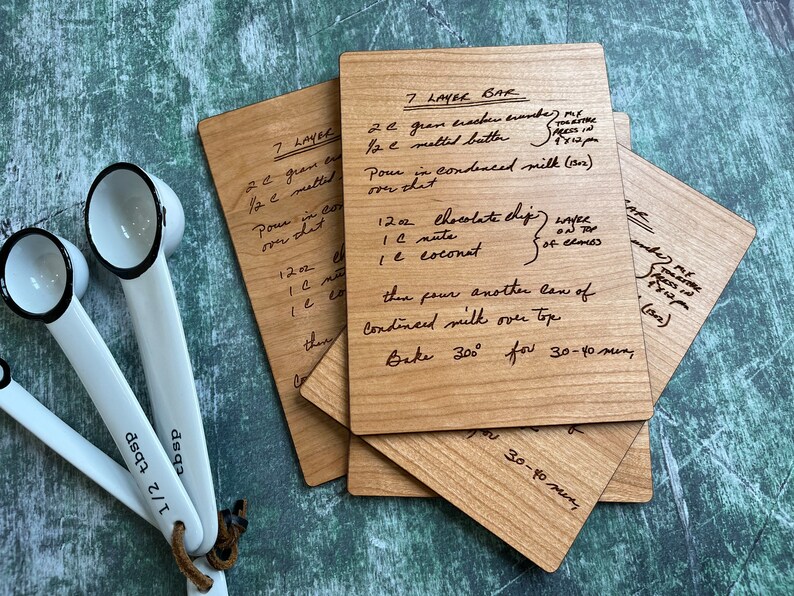 7 LAYER BAR
2 C gram cracker crumbs } MIX TOGETHER PRESS IN 9 x 12 pan
1/2 C melted butter
Pour in condensed milk (13oz)
over that
12 oz chocolate chip } LAYER ON TOP OF CRUMBS
1 C nuts
1 C coconut
then pour another can of
condensed milk over top
Bake 300° for 30-40 min,
7 LAYER
2 C gram crac
1/2 C melted
Pour in con
over that
12 oz
1 C nu
1 C co
then
con
BAR
crumbs } MIX TOGETHER PRESS IN 9 x 12 pan
(13oz)
of
for 30-40 min,
1/2 tbsp
tbsp